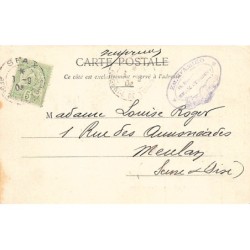 SFAX
CARTE POSTALE
Ce côté est exclusivement réservé à l'adresse
Imprimés
Madame Louise Roger
1 Rue des Annonciades
Meulan
(Seine & Oise)